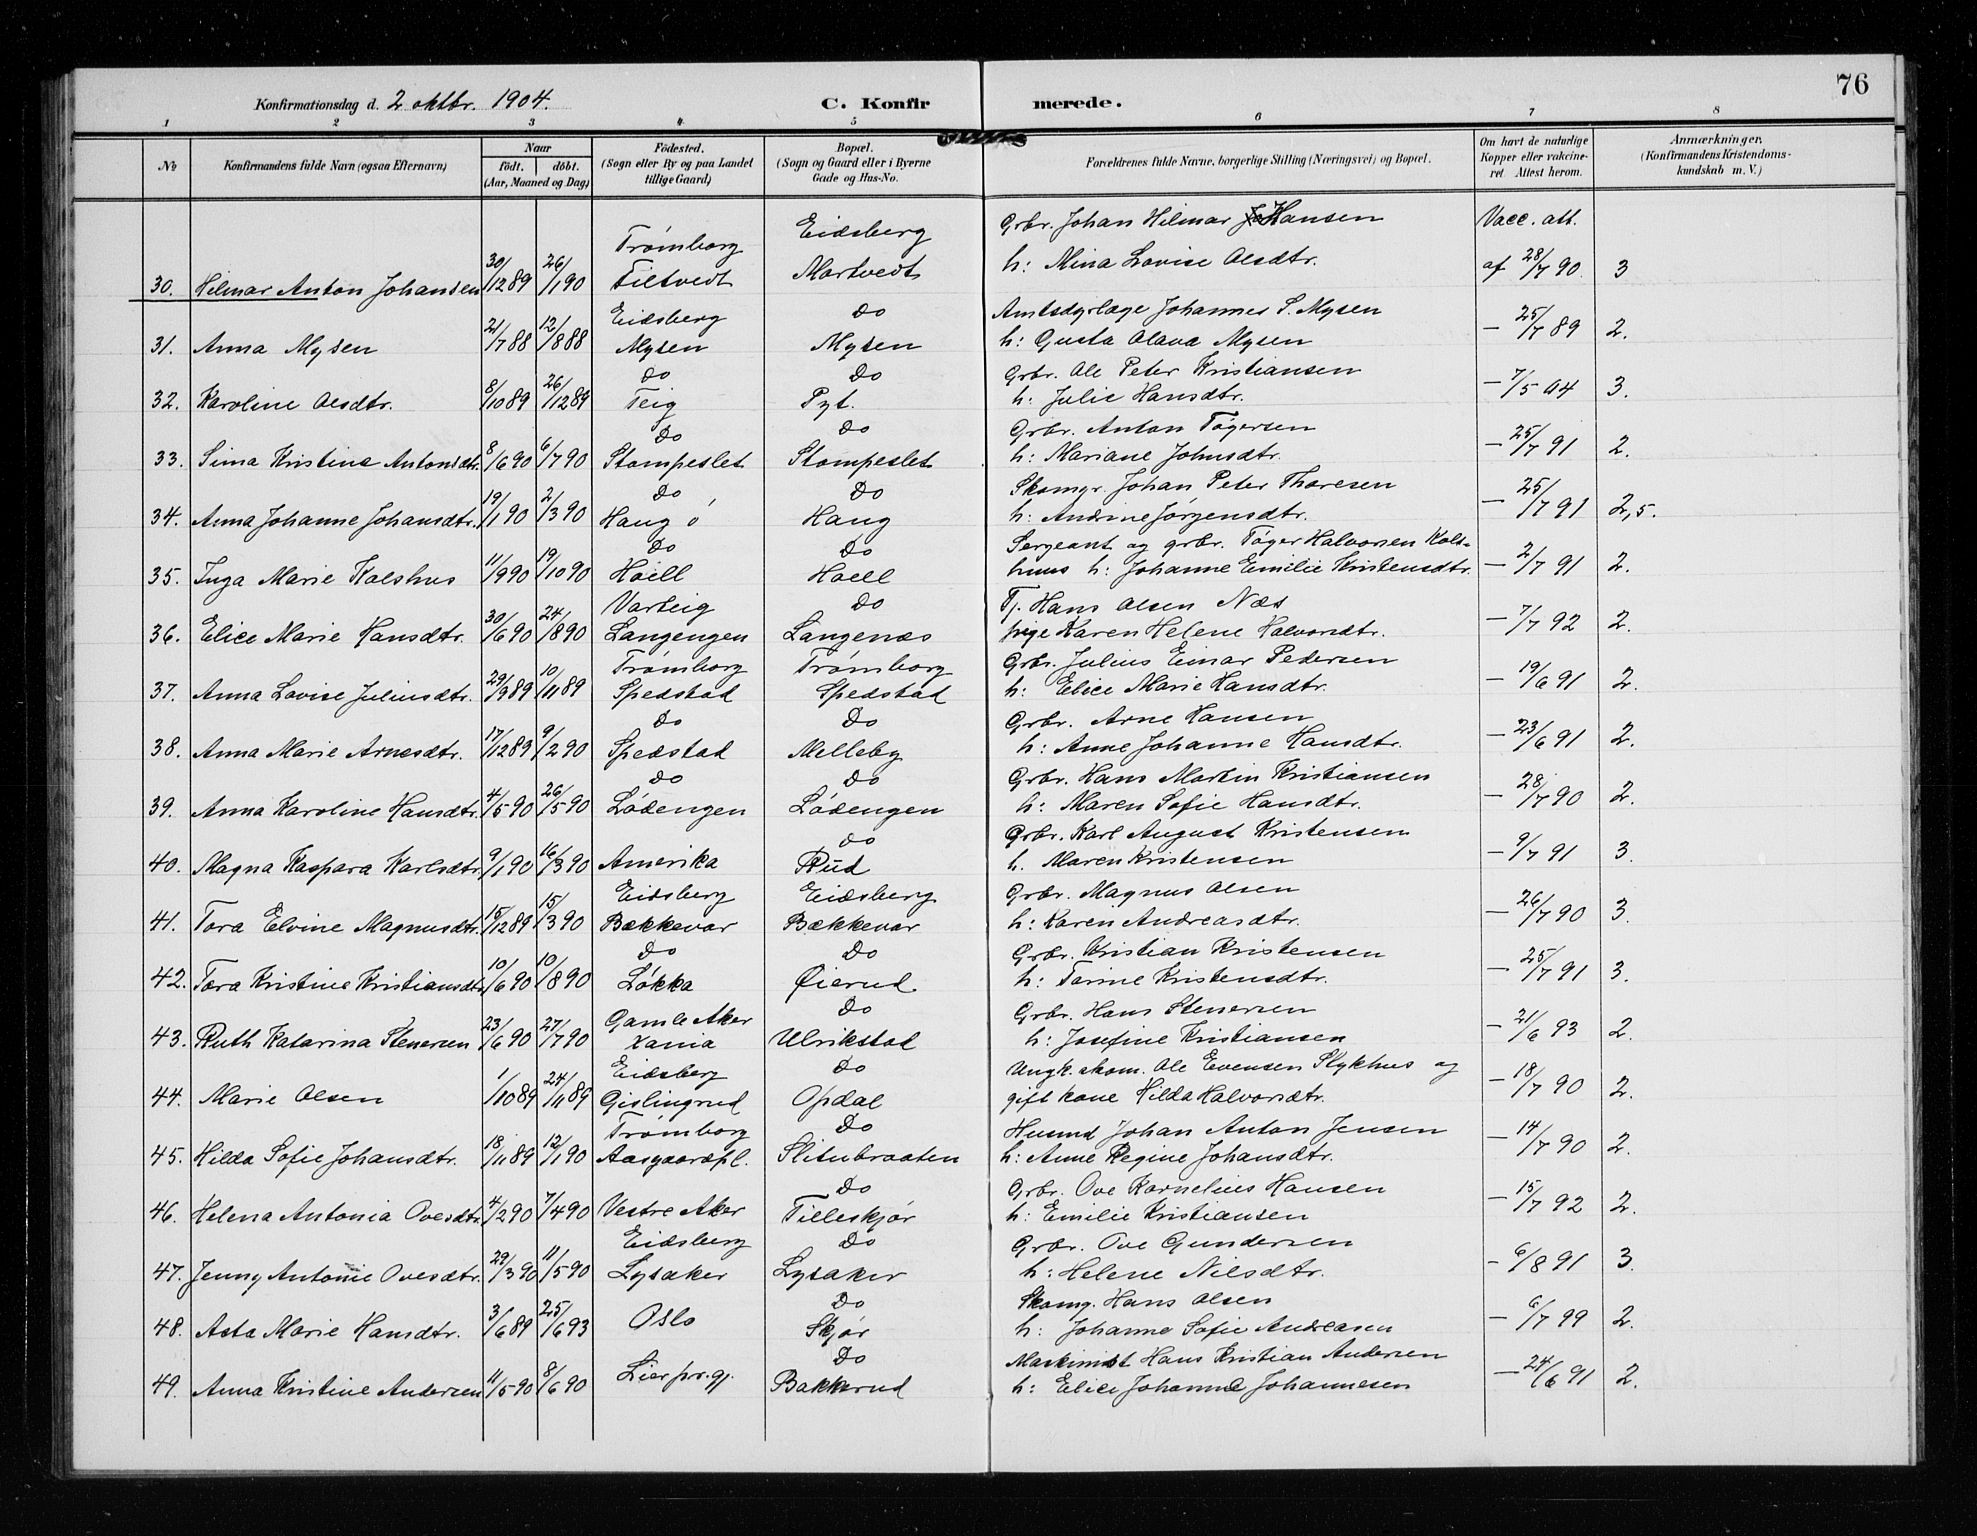 76
Konfirmationsdag d. 2 oktbr. 1904. C. Konfirmerede.
1 2 3 4 5 6 7 8
No Konfirmandens fulde Navn (ogsaa Efternavn) Naar födt. döbt. (Aar, Maaned og Dag) Födested. (Sogn eller By og paa Landet tillige Gaard) Bopæl. (Sogn og Gaard eller i Byerne Gade og Hus-No. Forældrenes fulde Navne, borgerlige Stilling (Næringsvei) og Bopæl. Om havt de naturlige Kopper eller vakcineret. Attest herom. Anmærkninger. (Konfirmandens Kristendomskundskab m. V.)
Trømborg Eidsberg Grbr. Johan Hilmar Hansen Vacc. att.
30. Hilmar Anton Johansen 30/12 89 26/1 90 Tiltvedt Martvedt h: Mina Lovise Olsdtr. af 28/7 90. 3
Eidsberg do Amtsdyrlæge Johannes S. Mysen
31. Anna Mysen 21/7 88 12/8 88 Mysen Mysen h: Gusta Olava Mysen — 25/7 89 2.
do do Grbr. Ole Peter Kristiansen
32. Karoline Olsdtr. 8/10 89 26/12 89 Teig Pyt. h: Julie Hansdtr. — 7/5 04 3.
do do Grbr. Anton Tøgersen
33. Sina Kristine Antonsdtr. 8/6 90 6/7 90 Stompeslet Stompeslet h: Mariane Johnsdtr. — 25/7 91 2.
do do Skomgr. Johan Peter Thoresen
34. Anna Johanne Johansdtr. 19/1 90 2/3 90 Haug ó Haug h: Andrine Jørgensdtr. — 25/7 91 2,5.
do do Sergeant og grbr. Tøger Halvorsen Kols-
35. Inga Marie Kolshus 11/9 90 19/10 90 Hoell Hoell huus h: Johanne Emilie Kristensdtr. — 2/7 91 2.
Varteig do Tj. Hans Olsen Næs
36. Elice Marie Hansdtr. 30/6 90 24/8 90 Langengen Langenæs pige Karen Helene Halvorsdtr. — 7/7 92 2.
Trømborg Trømborg Grbr. Julius Einar Pedersen
37. Anna Lovise Juliusdtr. 29/9 89 10/11 89 Spedstad Spedstad h: Elice Marie Hansdtr. — 19/6 91 2.
do do Grbr. Arne Hansen
38. Anna Marie Arnesdtr. 17/12 89 9/2 90 Spedstad Melleby h: Anne Johanne Hansdtr. — 23/6 91 2.
do do Grbr. Hans Martin Kristiansen
39. Anna Karoline Hansdtr. 4/5 90 26/5 90 Lødengen Lødengen h: Maren Sofie Hansdtr. — 28/7 90 2.
do Grbr. Karl August Kristensen
40. Magna Kaspara Karlsdtr. 9/1 90 16/3 90 Amerika Rud h. Maren Kristensen — 9/7 91 3.
Eidsberg Eidsberg Grbr. Magnus Olsen
41. Tora Elvine Magnusdtr. 15/12 89 15/3 90 Bækkevar Bækkevar h: Karen Andreasdtr. — 26/7 90 3.
do do Grbr. Kristian Kristensen
42. Tora Kristine Kristiansdtr. 10/6 90 10/8 90 Løkka Øierud h: Tarine Kristensdtr. — 25/7 91 3.
Gamle Aker do Grbr. Hans Stenersen
43. Ruth Katarina Stenersen 23/6 90 27/7 90 Xania Ulrikstad h: Josefine Kristiansen — 21/6 93 2.
Eidsberg do Ungk. skom. Ole Evensen Slykhus og
44. Marie Olsen 1/10 89 24/11 89 Gislingrud Opdal gift kone Hilda Halvorsdtr. — 18/7 90 2.
Trømborg do Husmd Johan Anton Jensen
45. Hilda Sofie Johansdtr. 18/11 89 12/1 90 Aasgaardpl. Slitubraaten h: Anne Regine Johansdtr. — 14/7 90 2.
do Grbr. Ove Kornelius Hansen
46. Helena Antonia Ovesdtr. 4/2 90 7/4 90 Vestre Aker Tilleskjør h: Emilie Kristiansen — 15/7 92 2.
Eidsberg do Grbr. Ove Gundersen
47. Jenny Antonie Ovesdtr. 29/3 90 11/5 90 Lysaker Lysaker h: Helene Nilsdtr. - 6/8 91 3.
do Skomg. Hans Olsen
48. Asta Marie Hansdtr. 3/6 89 25/6 93 Oslo Skjør h: Johanne Sofie Andreasen — 6/7 99 2.
do Maskinist Hans Kristian Andersen
49. Anna Kristine Andersen 11/5 90 8/6 90 Lier pr.gj. Bakkerud h: Elice Johanne Johannesen — 24/6 91 2.